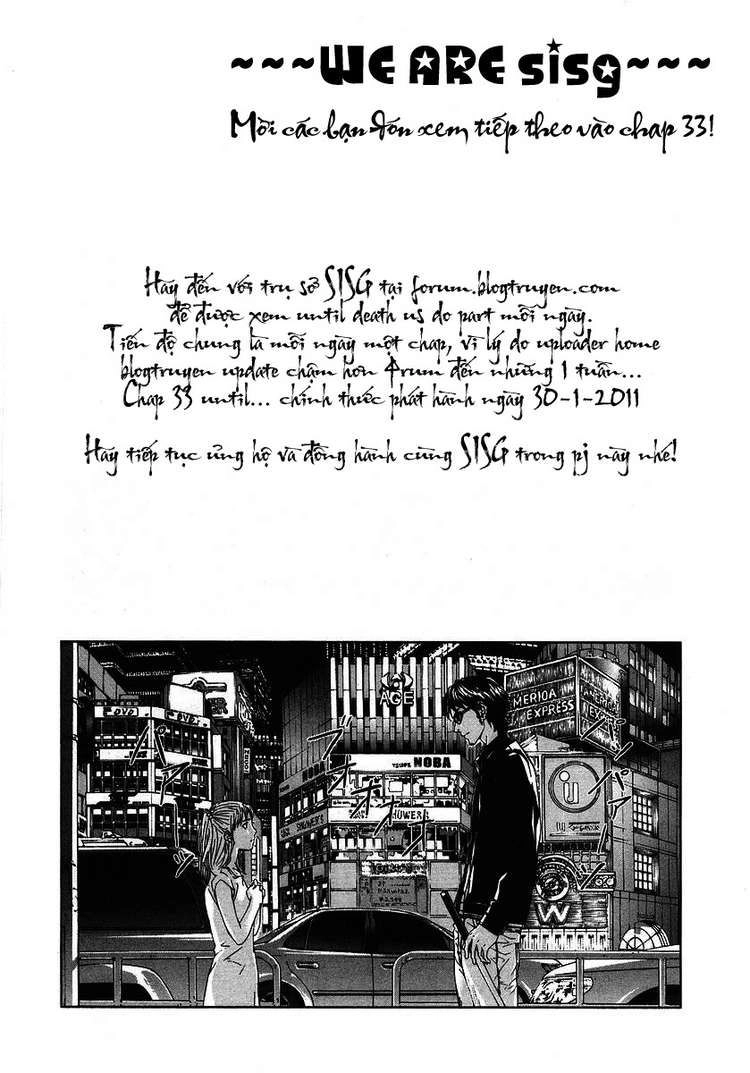 ~~~WE ARE sisg~~~
Mời các bạn đón xem tiếp theo vào chap 33!
Hãy đến với trụ sở SISG tại forum.blogtruyen.com
để được xem until death us do part mỗi ngày.
Tiến độ chung là mỗi ngày một chap, vì lý do uploader home
blogtruyen update chậm hơn 4rum đến những 1 tuần...
Chap 33 until... chính thức phát hành ngày 30-1-2011
Hãy tiếp tục ủng hộ và đồng hành cùng SISG trong pj này nhé!
AGE
MERIOA
EXPRESS
DVD
DVD
NOBA
NOBA
SHOWERS
HOWERS
iu
W
パァァ
ブオオオ
パパ